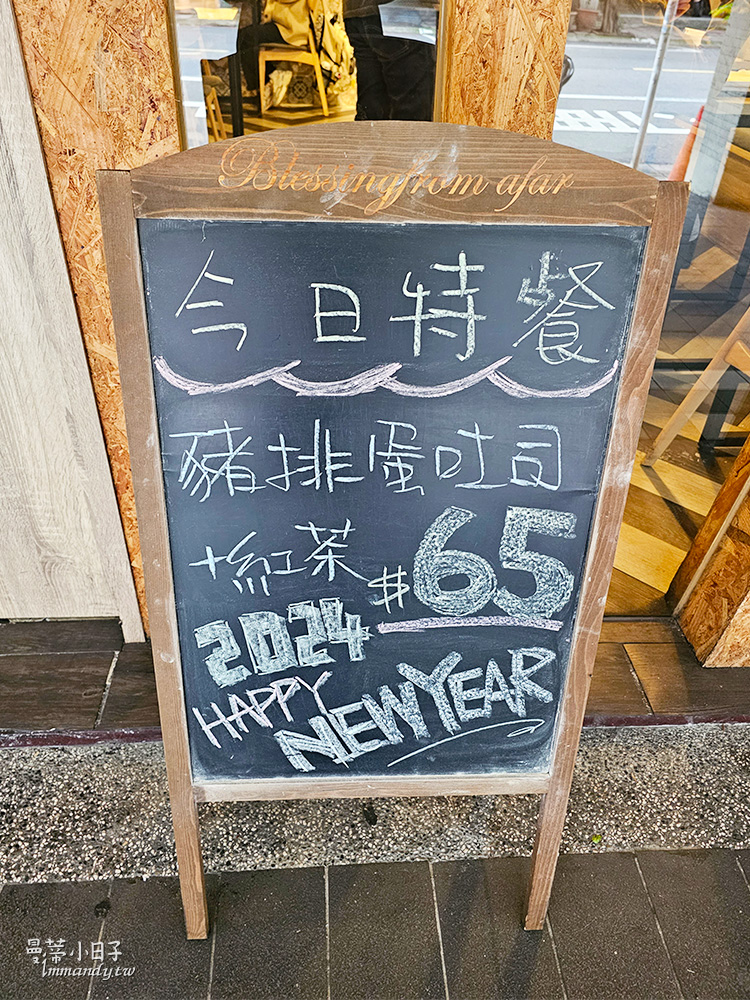 Blessing from afar
今日特餐
豬排蛋吐司
+紅茶 $65
2024
HAPPY NEW YEAR
曼蒂小日子
1mmandy.tw